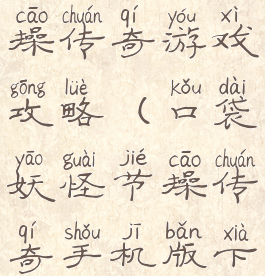 cāo chuán qí yóu xì
操传奇游戏
gōng lüè kǒu dài
攻略（口袋
yāo guài jié cāo chuán
妖怪节操传
qí shǒu jī bǎn xià
奇手机版下